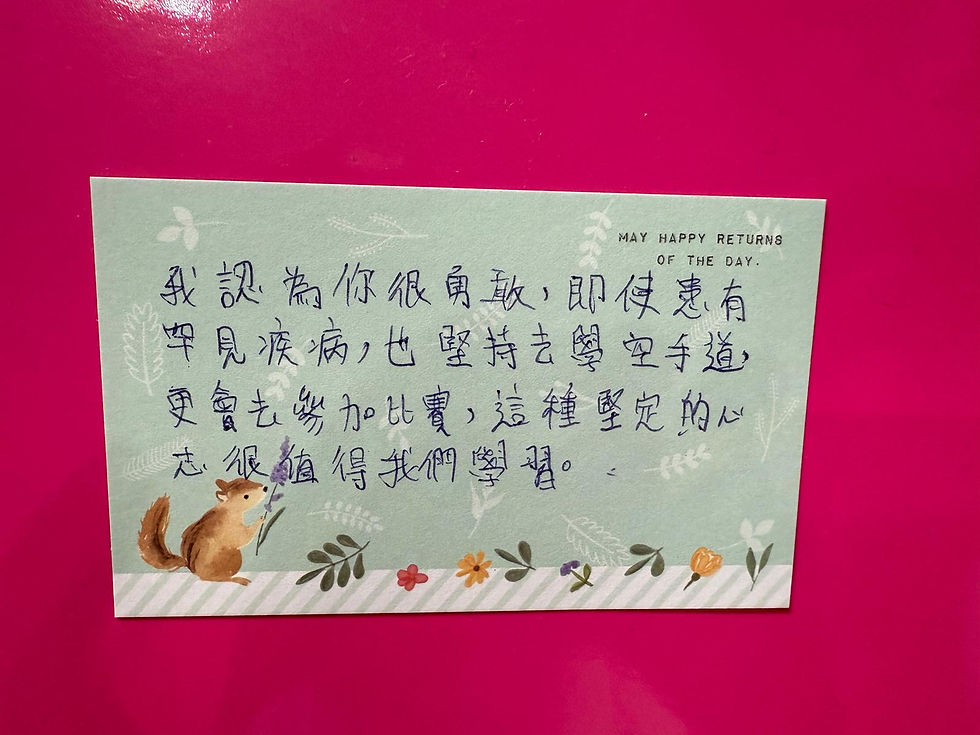 MAY HAPPY RETURNS
OF THE DAY.
我認為你很勇敢，即使患有
罕見疾病，也堅持去學空手道，
更會去參加比賽，這種堅定的心
志很值得我們學習。